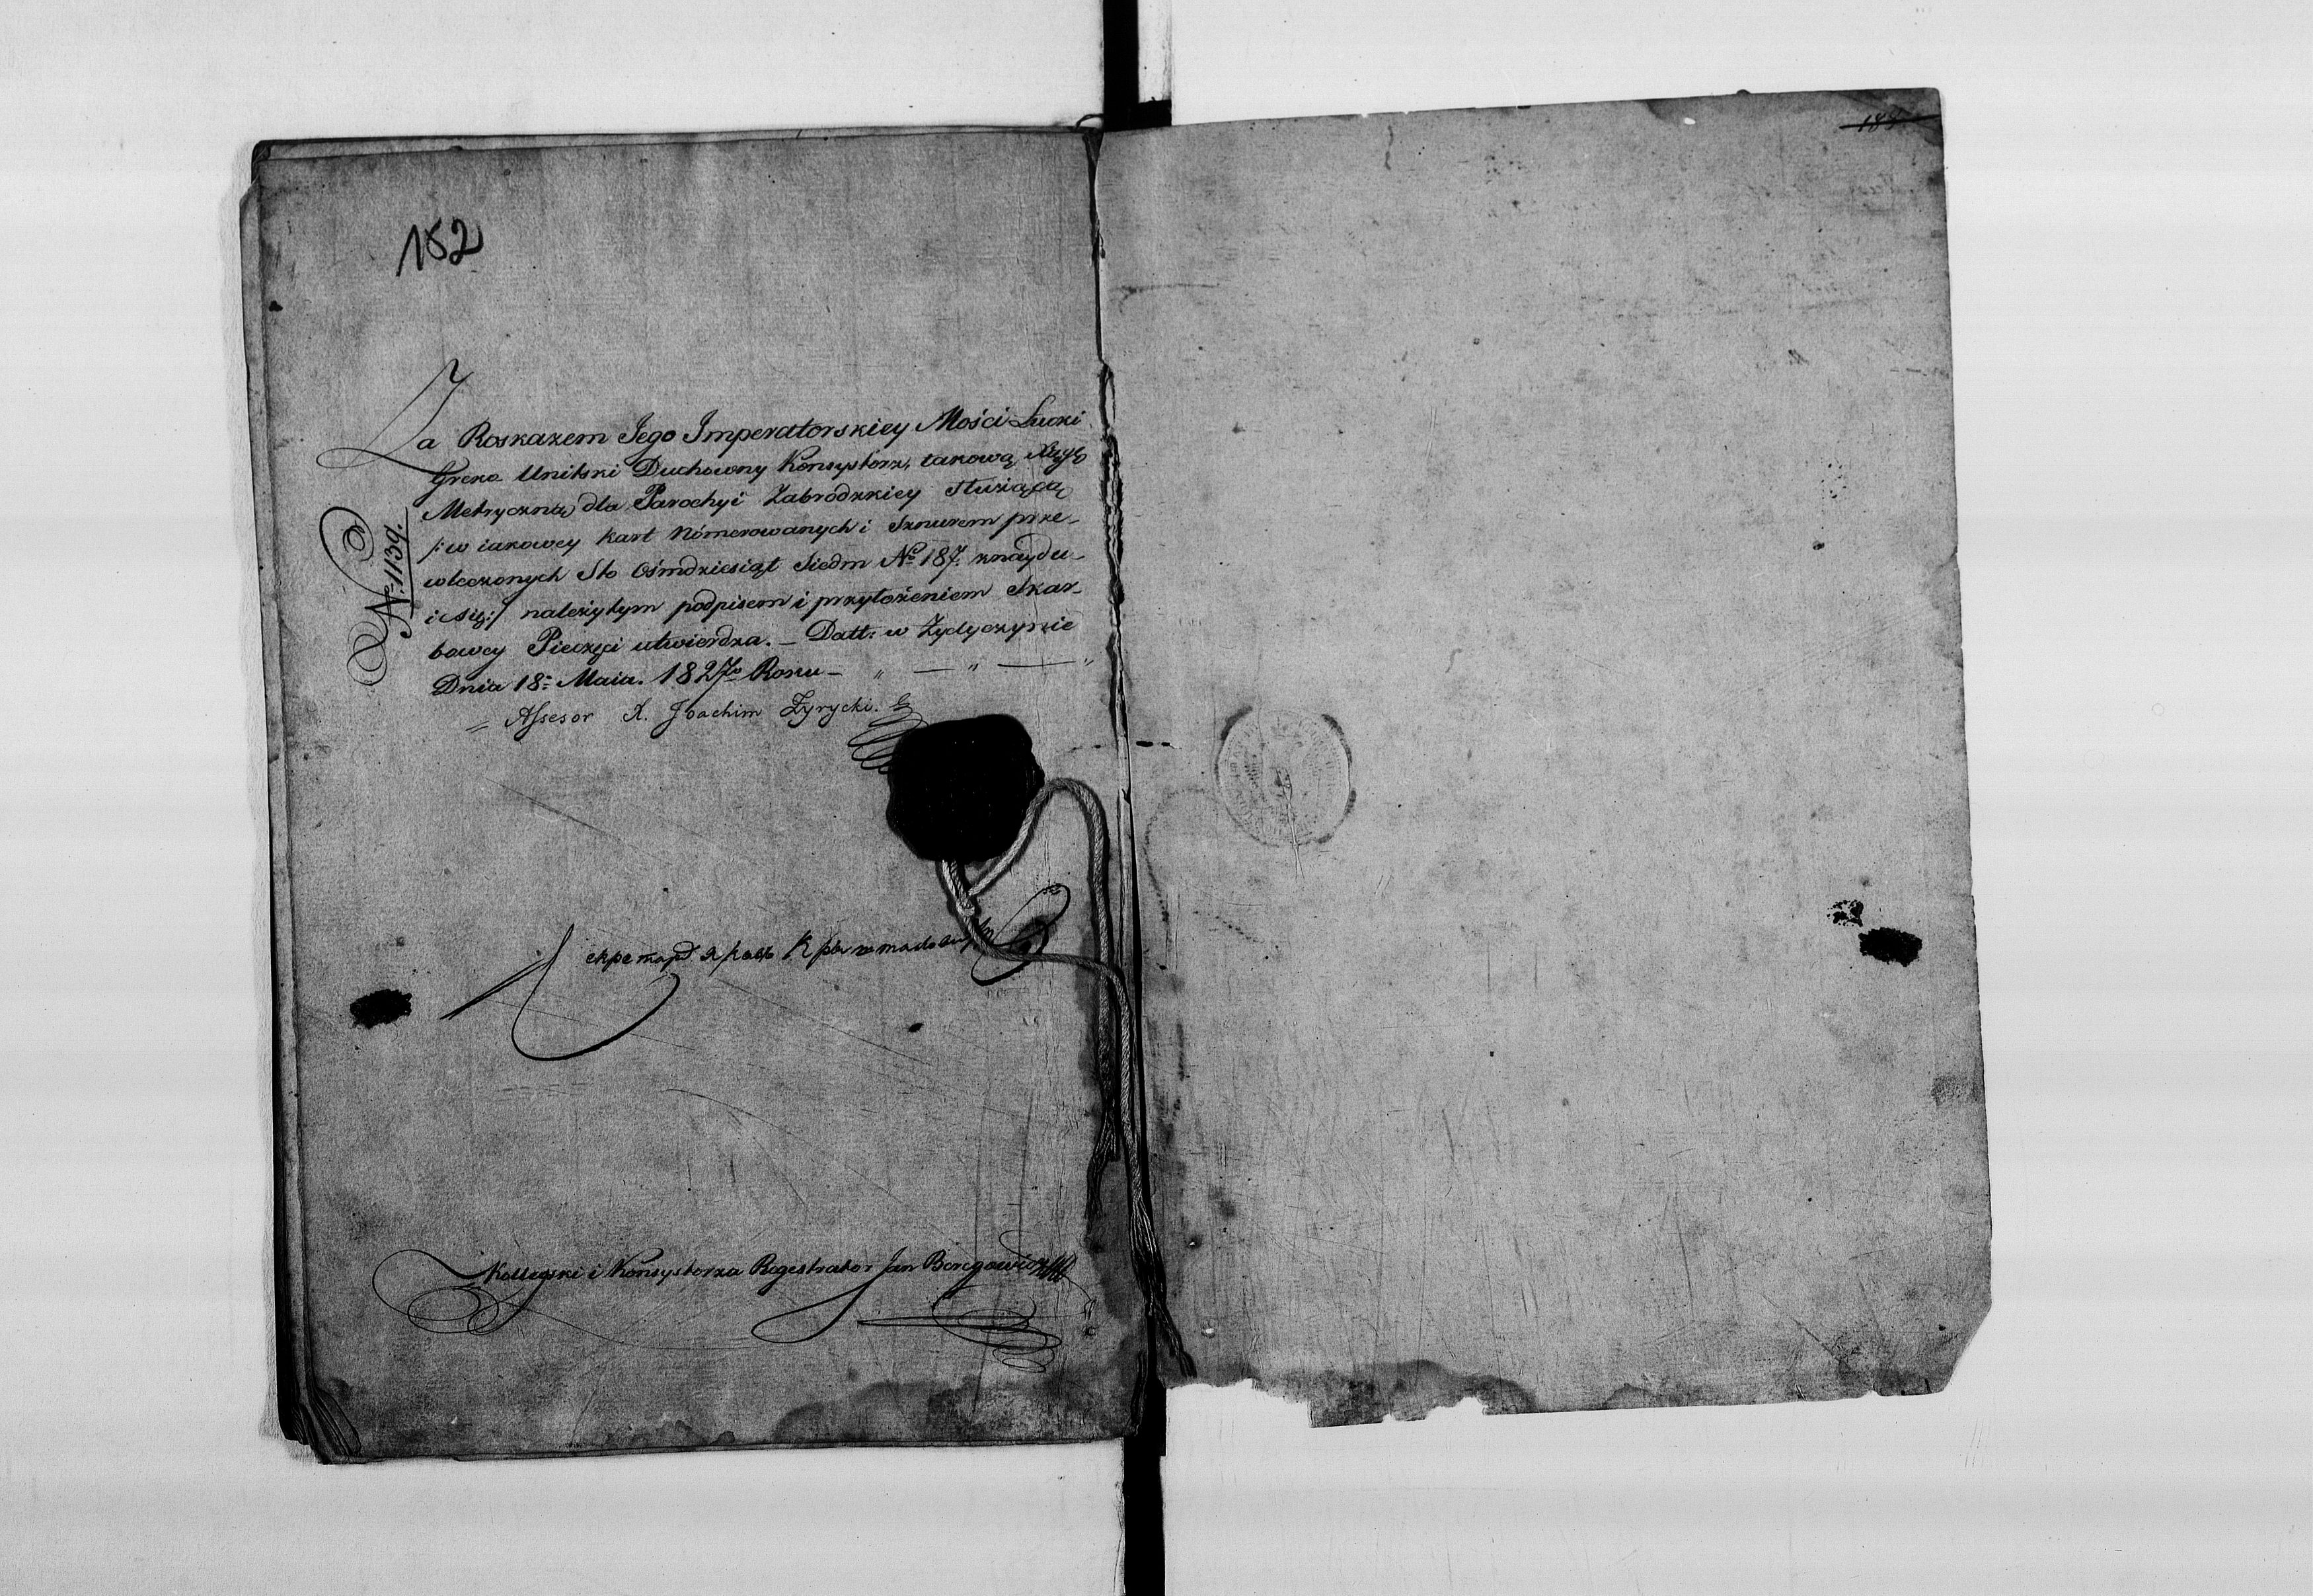 152
Za Roskazem Jego Imperatorskiey Mości Łucki
Greko Unitski Duchowny Konsystorz, takową Xięgę
Metryczną dla Parochyi Zabrodzkiey służącą
/:w iakowey kart Nómerowanych i Sznurem prze-
wleczonych Sto Ośmdziesiąt Siedm No 187. znaydu-
ie się:/ należytym podpisem i przyłożeniem Skar-
bowey Pieczęci utwierdza. – Datt: w Żydyczynie
Dnia 18: Maia. 1827o Roku –
No. 1139.
Assesor X. Joachim Żyrycki.
Секретарь
Kollegski i Konsystorza Regestrator Jan